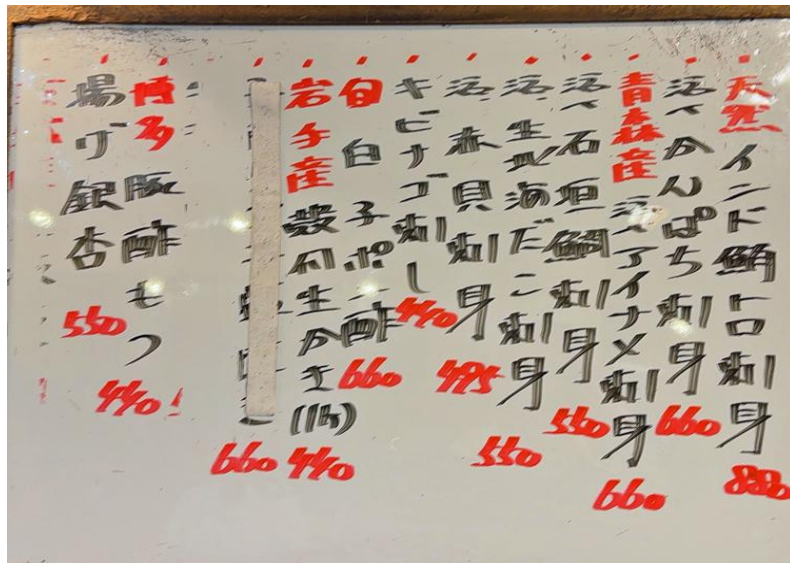 天然インド鮪トロ刺身 880
活〆かんぱち刺身 660
青森産活〆アイナメ刺身 660
活〆石垣鯛刺身 550
活生北海だこ刺身 550
活赤貝刺身 495
キビナゴ刺し 440
旬白子ポン酢 660
岩手産殻付生かき(1ヶ) 440
660
博多豚酢もつ 440
揚げ銀杏 550